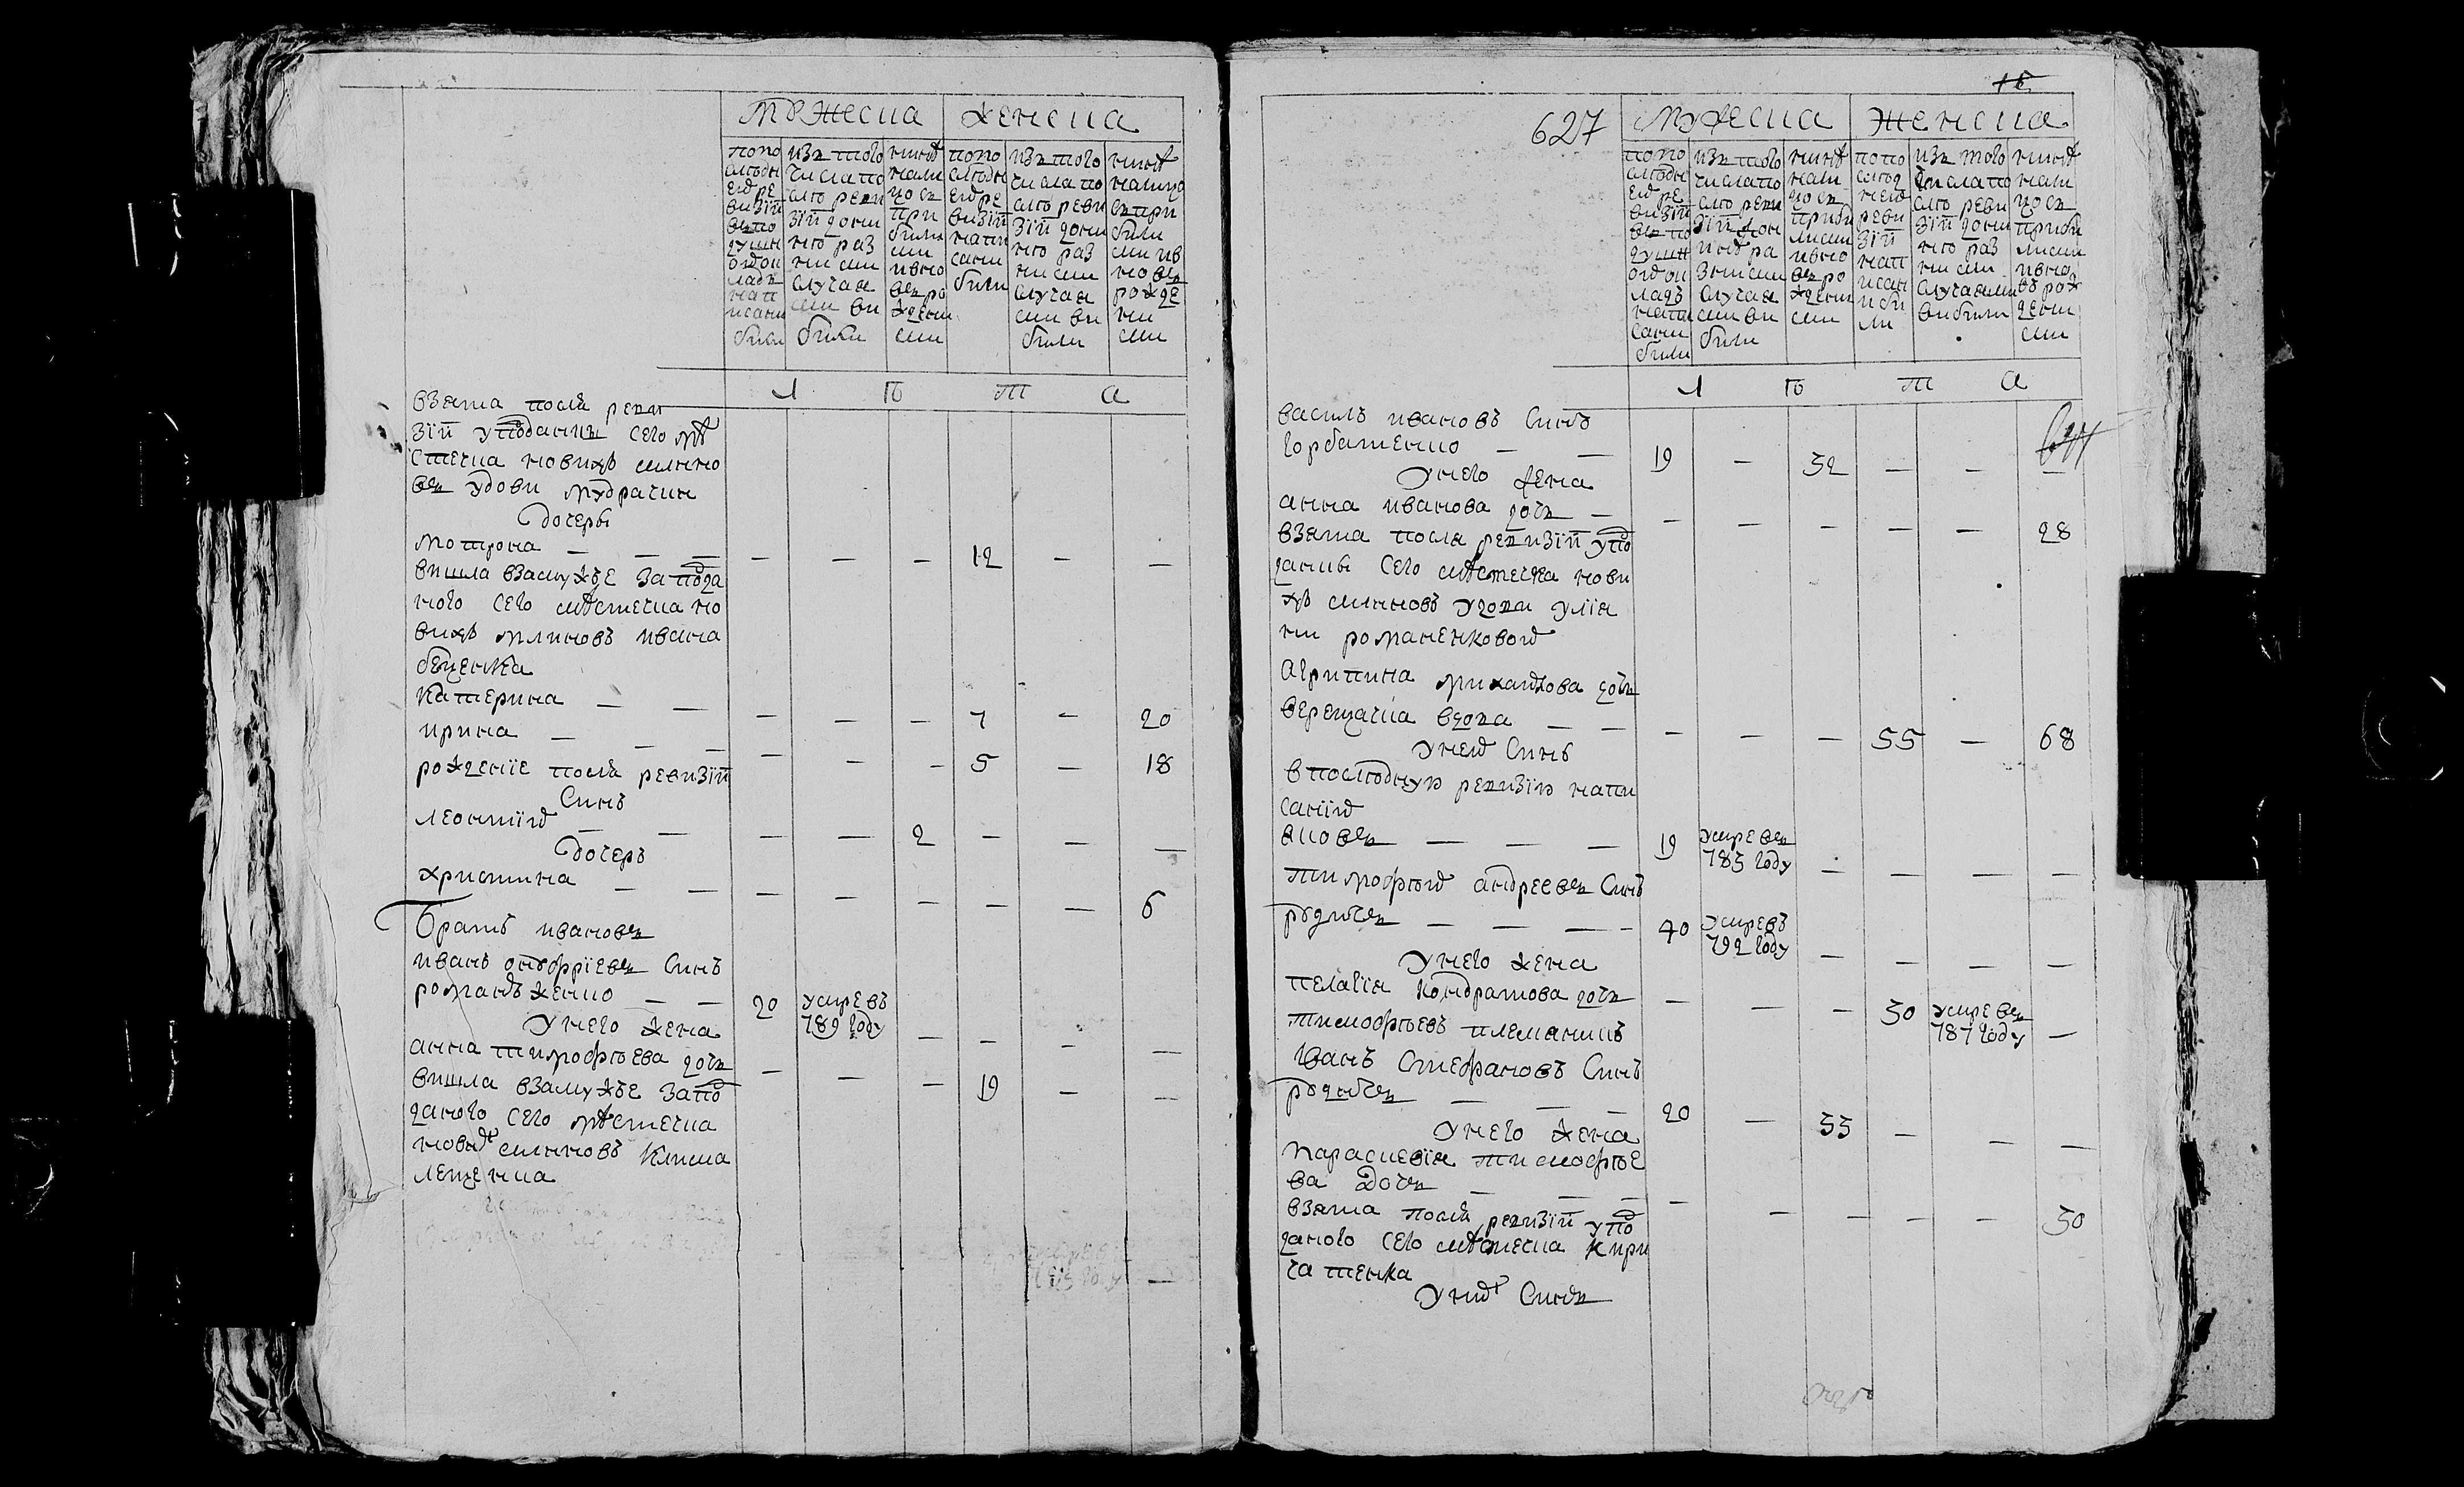 мужеска женска
попо слѣдн ейре визій вспо душн ойок ладъ нап исани били
изъ того числа по слѣ реви зій донн нѣ раз ни ми случая ми ви били
нинѣ нали цо съ при били ми ивно въ ро жденн ими
попо слѣдн ейре визій напи сани били
изъ того числа по слѣ реви зій донн нѣ раз ни ми случая ми ви били
нинѣ налицо съ при били ми ив но въ рожде нн ими
Л ѣ т а
взята посля реви
зій уподаним сего мѣ
стечка новихъ млино
въ удови мудрачик
дочеры
мотрона — — — — — — 12 — —
вишла взамужъе за пода
ного сего мѣстечка но
вихъ млиновъ ивана
беценка
катерина — — — — — 7 — 20
ирина — — — — — — 5 — 18
рожденіе посля ревизій
синъ
леонтій — — — — 2 — — —
дочеръ
христина — — — — — — — 6
Братъ ивановъ
иванъ онофріевъ синъ
романъженко — — 20 умревъ 789 году — — — —
у него жена
анна тимофѣева дочъ — — — 19 — —
вишла взамужъе запо
даного сего мѣстечка
новихъ млиновъ клима
лещенка
627
мужеска женска
попо слѣдн ейре визій вспо душн ойок ладъ напи сани били
изъ того числа по слѣ реви зій дон инѣ ра зними случая ми ви били
нинѣ нали цо съ приби лими ивно въ ро жденн ими
попо слѣд ней реви зій нап исан иби ли
изъ того числа по слѣ реви зій донн нѣ раз ни ми случаями вибили
нинѣ нали цо съ приби лими ивно въ рож денн ими
Л ѣ т а
василъ ивановъ синъ
горбатенко — — 19 — 32 — — —
у него жена
анна иванова дочъ — — — — — — 28
взята посля ревизій упо
даним сего мѣстечка нови
хъ млиновъ удови улія
ни романенковой
Агрипина михайлова дочъ
верещачка вдова — — — — — 55 — 68
у ней синъ
в послѣдную ревизію напи
саній
яковъ — — — 19 умревъ 785 году — — — —
тимофѣй андреевъ синъ
рудичъ — — — — 40 умревъ 792 году — — — —
у него жена
пелагія кондратова дочъ — — — 30 умревъ 787 году —
тимофѣевъ племаникъ
Іванъ Стефановъ синъ
рудичъ — — — 20 — 33 — — —
у него жена
параскевія тимофѣе
ва дочъ — — — — — — — — 30
взята посля ревизій упод
даного сего мѣстечка кири
чатенка
у нихъ синъ